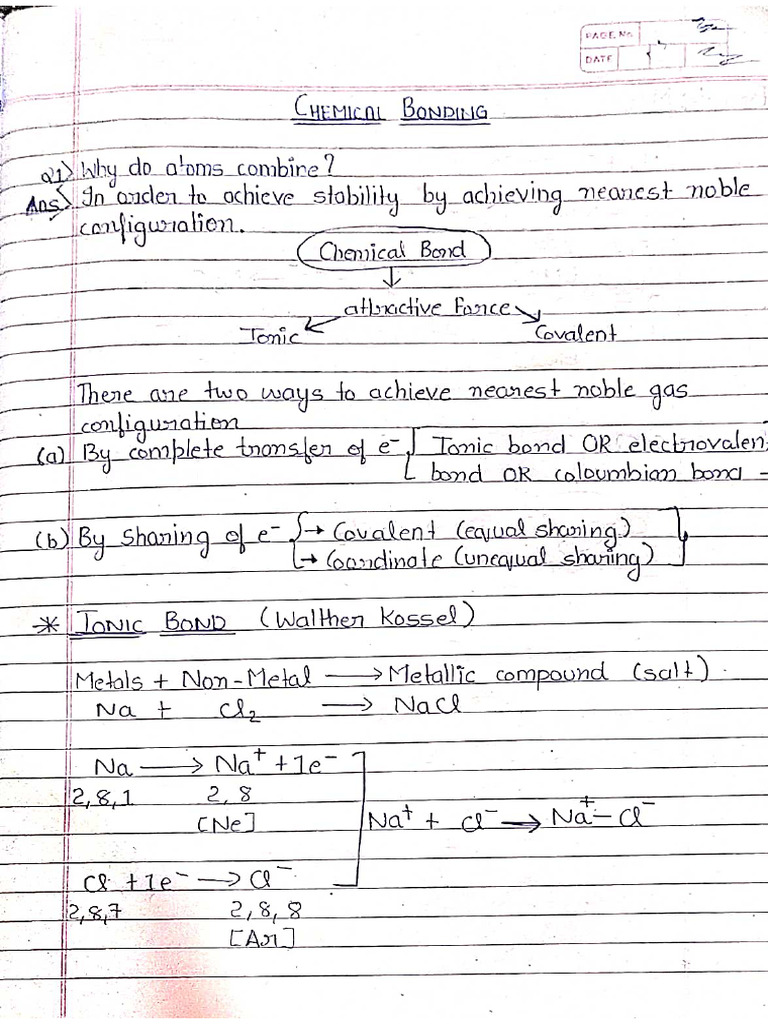 PAGE No.
DATE
CHEMICAL BONDING
Q1> Why do atoms combine?
Ans> In order to achieve stability by achieving nearest noble
configuration.
Chemical Bond
↓
attractive force
Ionic
Covalent
There are two ways to achieve nearest noble gas
configuration
(a) By complete transfer of e⁻ [ Ionic bond OR electrovalen
bond OR coloumbian bond -
(b) By sharing of e⁻ { → Covalent (equal sharing)
→ Coordinate (unequal sharing) }
* IONIC BOND (Walther Kossel)
Metals + Non-Metal ⟶ Metallic compound (salt).
Na + Cl₂ ⟶ NaCl
Na ⟶ Na⁺ + 1e⁻
2,8,1 2, 8
[Ne]
Na⁺ + Cl⁻ ⟶ Na⁺–Cl⁻
Cl + 1e⁻ ⟶ Cl⁻
2,8,7 2, 8, 8
[Ar]